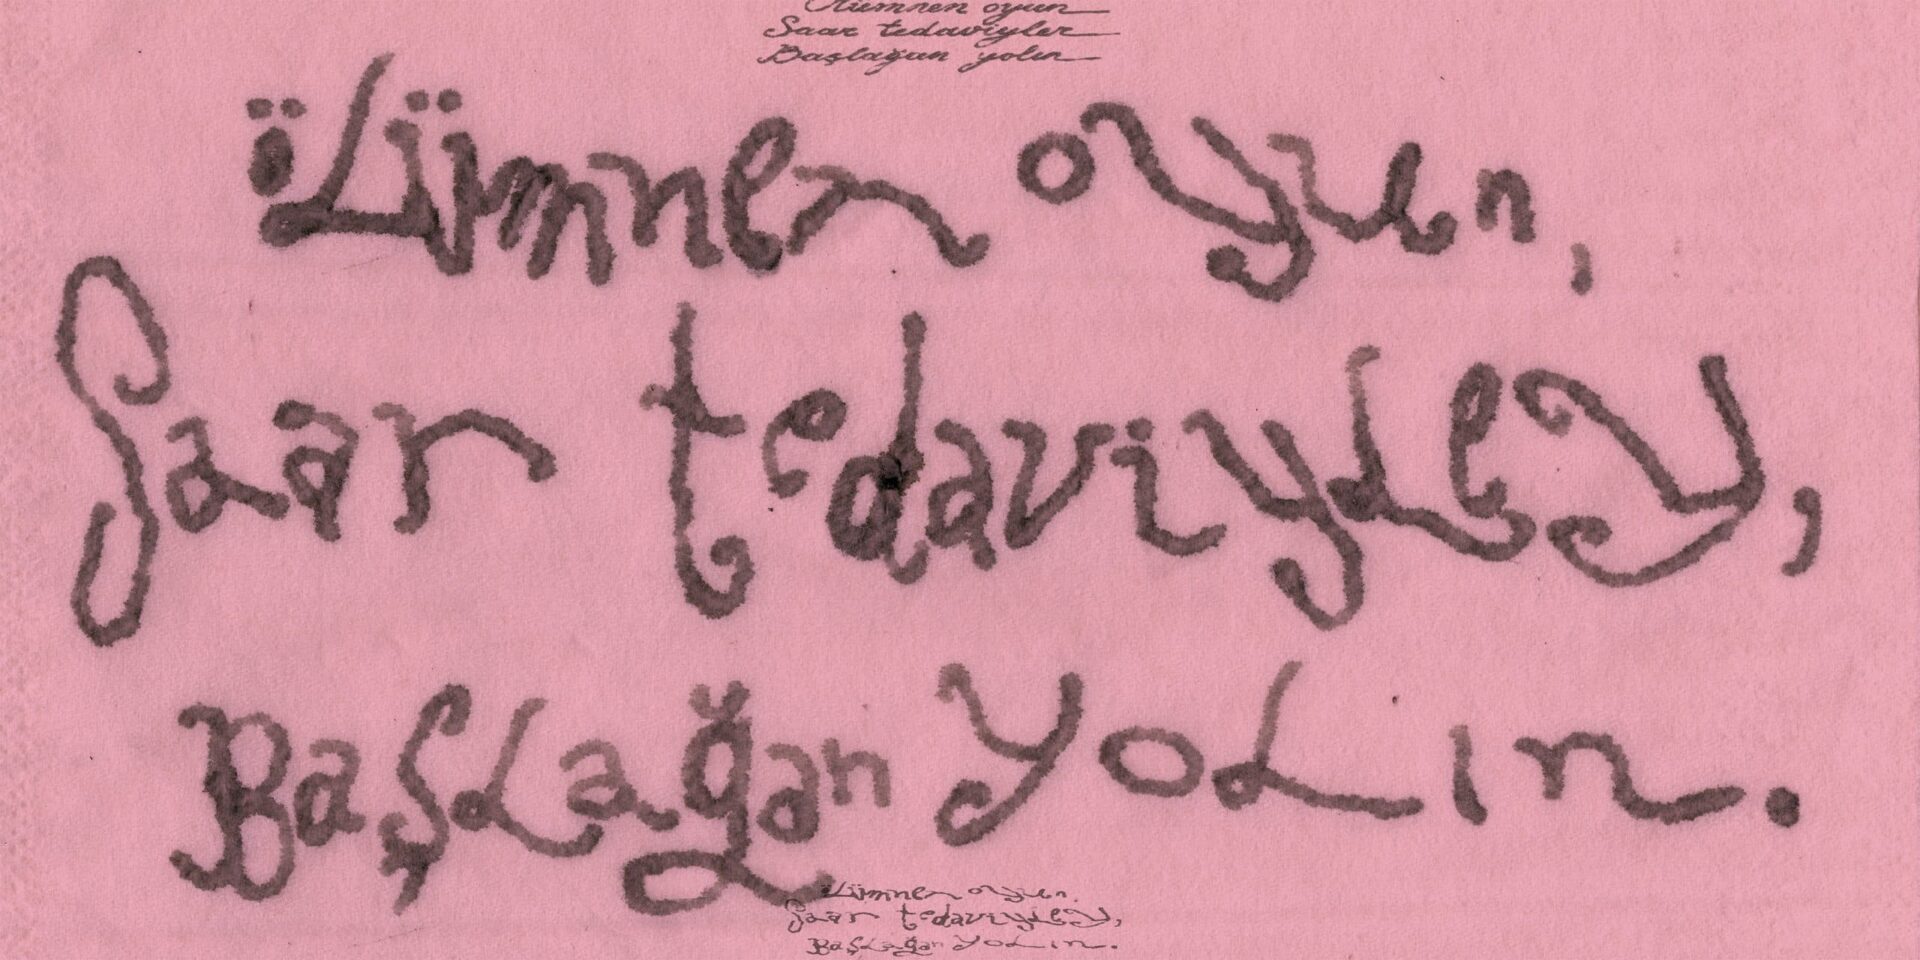 Ölümnen oyun
Saar tedaviyler
Başlağan yolın
ölümnen oyun,
Saar tedaviyley,
Başlağan yolın.
ölümnen oyun,
Saar tedaviyley,
Başlağan yolın.